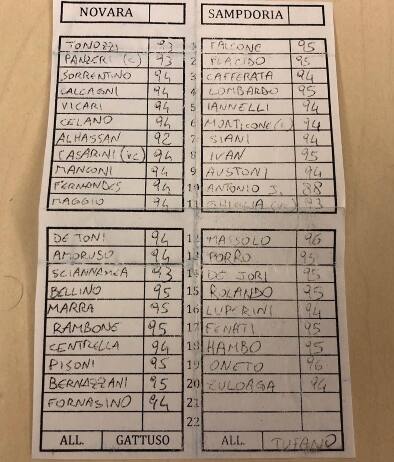 NOVARA SAMPDORIA
TONOZZI 93 1 FALCONE 95
PANZERI (C) 93 2 PLACIDO 95
SORRENTINO 94 3 CAFFERATA 94
CALCAGNI 94 4 LOMBARDO 95
VICARI 94 5 IANNELLI 94
CELANO 94 6 MONTICONE (C) 94
ALHASSAN 92 7 SIANI 94
CASARINI (VC) 94 8 IVAN 95
MANCONI 94 9 AUSTONI 94
FERNANDES 94 10 ANTONIO J. 88
MAGGIO 94 11 93
DE TONI 94 12 MASSOLO 96
AMORUSO 94 13 PORRO 95
93 14 DE JORI 95
BELLINO 95 15 ROLANDO 95
MARRA 95 16 LUPERINI 94
RAMBONE 95 17 FENATI 95
CENTRELLA 94 18 HAMBO 95
PISONI 95 19 ONETO 96
BERNAZZANI 95 20 ZULOAGA 94
FORNASINO 94 21
22
ALL. GATTUSO ALL. TUFANO